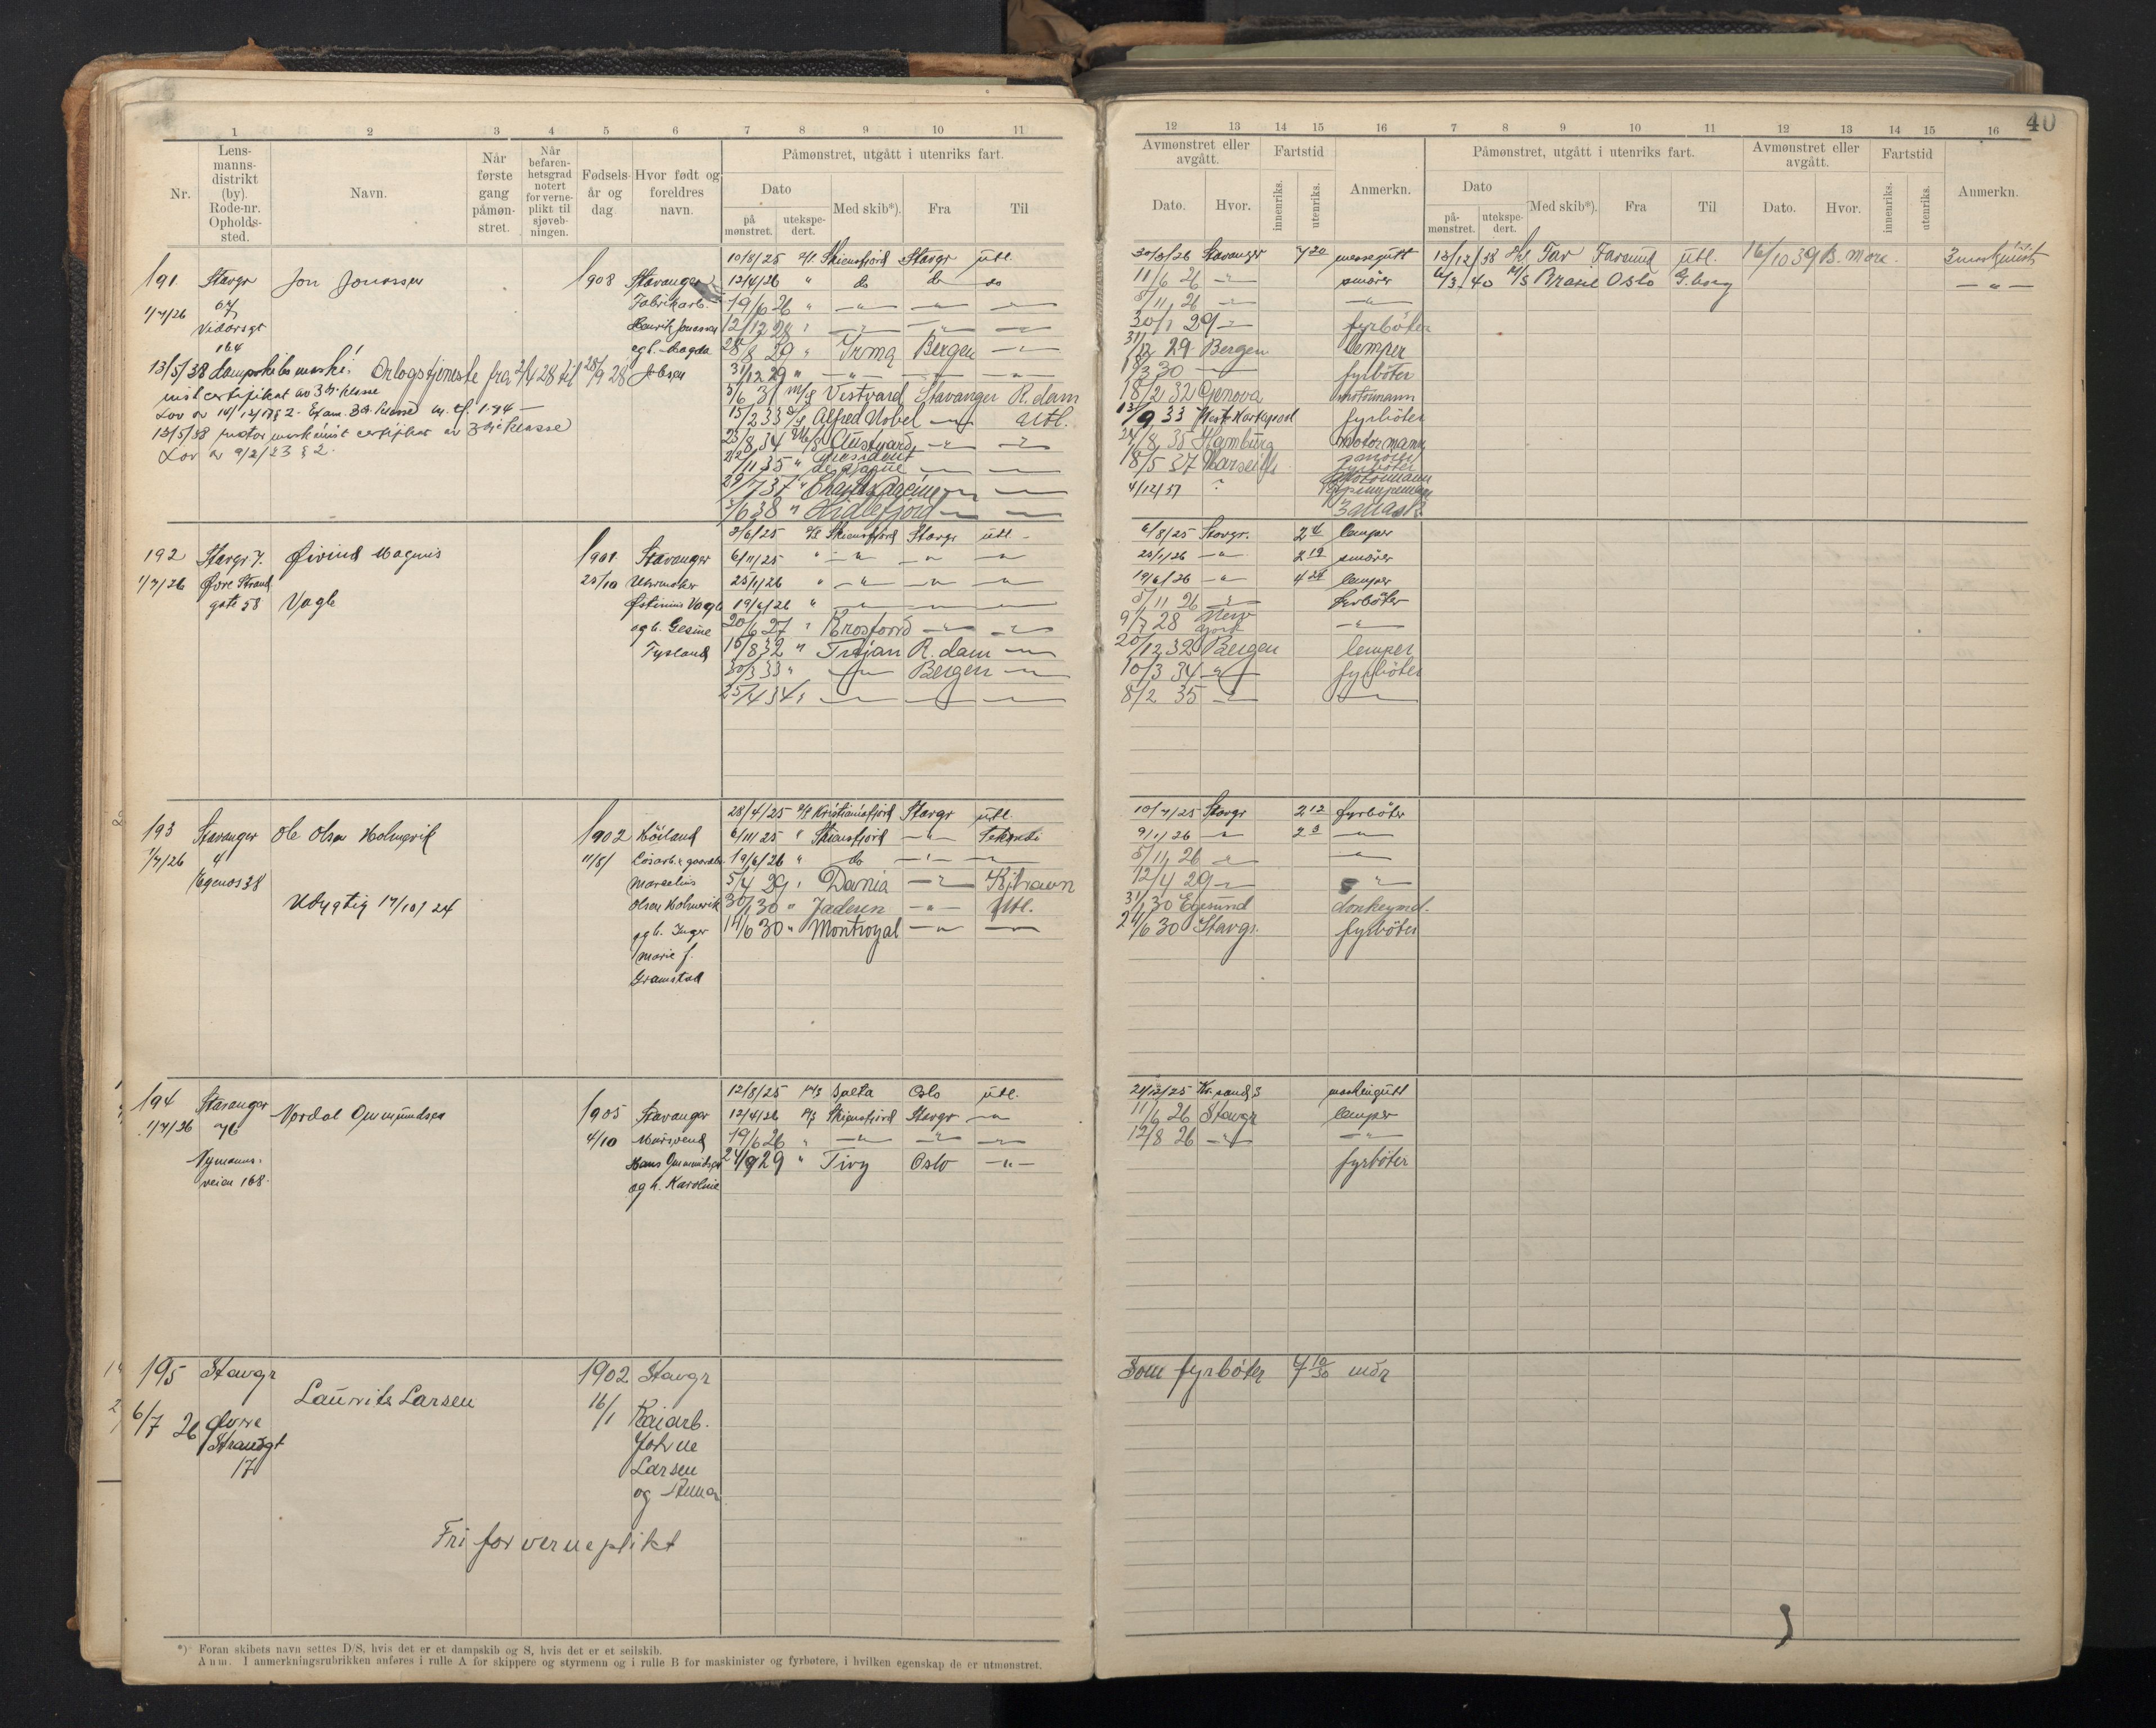 40
1 2 3 4 5 6 7 8 9 10 11
Nr.
Lens-
manns-
distrikt
(by).
Rode-nr.
Opholds-
sted.
Navn.
Når
første
gang
påmøn-
stret.
Når
befaren-
hetsgrad
notert
for verne-
plikt til
sjøveb-
ningen.
Fødsels-
år og
dag
Hvor født og
foreldres
navn.
Påmønstret, utgått i utenriks fart.
Dato
på
mønstret.
utekspe-
dert.
Med skib*).
Fra
Til
12 13 14 15 16 7 8 9 10 11 12 13 14 15 16
Avmønstret eller
avgått.
Dato.
Hvor.
Fartstid
innenriks.
utenriks.
Anmerkn.
Påmønstret, utgått i utenriks fart.
Dato
på-
mønstret.
utekspe-
dert.
Med skib*).
Fra
Til
Avmønstret eller
avgått.
Dato.
Hvor.
Fartstid
innenriks.
utenriks.
Anmerkn.
191 Stavgr Jon Jonassen 1908 Stavanger
1/7/26
Vidarsgt
164
Fabrikarb.
Henrik Jonassen
og h. Magda
Jobsen
13/5/38 dampskibsmaski-
Orlogstjeneste fra 2/4 28 til 28/9 28
nist certifikat av 3dje klasse
13/5/38 motormaskinist certifikat av 3dje klasse
Lov av 9/2/23 § 2.
10/8/25 D/S Skiensfjord Stavgr utl.
12/4/26 " do do do
19/6 26 " — " — — " — — " —
12/12 28 " — " — — " — — " —
28/8 29 " Irma Bergen — " —
31/12 29 " — " — — " — — " —
5/6 31 M/S Vestvard Stavanger R.dam
15/2 33 D/S Alfred Nobel — " — Utl.
23/8 34 M/S Austvard — " — — " —
22/11 35 " President
de Vogue — " — — " —
29/7 37 " Charles Racine — " — — " —
3/6 38 " Hidlefjord — " — — " —
30/3/26 Stavanger 7 20 messegutt
11/6 26 — " — smører
5/11 26 — " — — " —
30/1 29 — " — fyrbøter
31/12 29 Bergen lemper
18/3 30 — " — fyrbøter
18/2 32 Genova motormann
13/9 33 West-Hartlepool fyrbøter
24/8 35 Hamburg Motormann
18/5 37 Marseille
fyrbøter
4/12/37 ? Motormann
Pumpemann
3 mask
13/12/38 D/S Tar Farsund utl. 16/10 39 B. More. 3 maskinist
6/3 40 M/S Brasil Oslo G.borg — " —
192 Stavgr 7. Øivind Magnus 1901 Stavanger
1/7/26 Øvre Strand
gate 58 Vagle
25/10 Urmaker
Østinius Vagle
og h. Gesine
Tysland
2/6/25 D/S Skiensfjord Stavgr utl -
6/11/25 " — " — — " — — " —
25/1/26 " — " — — " — — " —
19/6/26 " — " — — " — — " —
20/6 27 " Krosfond — " — — " —
16/8 32 " Trajan R.dam — " —
30/3 33 " — " — Bergen — " —
25/4 34 " — " — — " — — " —
6/8/25 Stavgr. 2 4 lemper
25/1/26 — " — 2 19 smører
19/6/26 — " — 4 24 lemper
5/11 26 — " — fyrbøter
9/7 28 New
York — " —
20/12 32 Bergen lemper
10/3 34 — " — fyrbøter
8/2 35 — " — — " —
193 Stavanger Ole Olsen Holmevik 1902 Høiland
1/7/26 4
Egenes 38
Udygtig 17/10/24
11/8/ Løsarb. & gaardbr.
Marselius
Olsen Holmevik
og h. Inger
Marie f.
Gramstad
28/4/25 D/S Kristianiafjord Stavgr utl.
6/11/25 " Skiensfjord — " —
19/6/26 " do — " — — " —
5/4 29 " Dania — " — Kjbhavn
30/1 30 " Jaderen — " — Utl.
14/6 30 " Montroyal — " — — " —
10/7/25 Stavgr 2 12 fyrbøter
9/1/26 — " — 2 3 — " —
5/11 26 — " — — " —
12/4 29 — " — — " —
31/1 30 Egersund donkeymd.
24/6 30 Stavgr. fyrbøter
194 Stavanger Nordal Ommundsen 1905 Stavanger
1/7/26 76
Nymanns-
veien 168.
4/10 Mursvend
Hans Ommundsen
og h. Karoline
12/8/25 M/S Salta Oslo utl.
12/4/26 D/S Skiensfjord Stavgr — " —
19/6 26 " — " — — " — — " —
24/9 29 " Tivy Oslo — " —
21/12/25 Kr.sand S maskingutt
11/6 26 Stavgr lemper
12/8 26 — " — — " —
fyrbøter
195 Stavgr Laurits Larsen 1902 Stavgr
6/7 26 Øvre
Strandgt
17
16/1 Kaiarb.
Johne
Larsen
og Anna
Fri for verneplikt
Som fyrbøter 7 10/30 mdr
*) Foran skibets navn settes D/S, hvis det er et dampskib og S, hvis det er et seilskib.
Anm. I anmerkningsrubrikken anføres i rulle A for skippere og styrmenn og i rulle B for maskinister og fyrbøtere, i hvilken egenskap de er utmønstret.